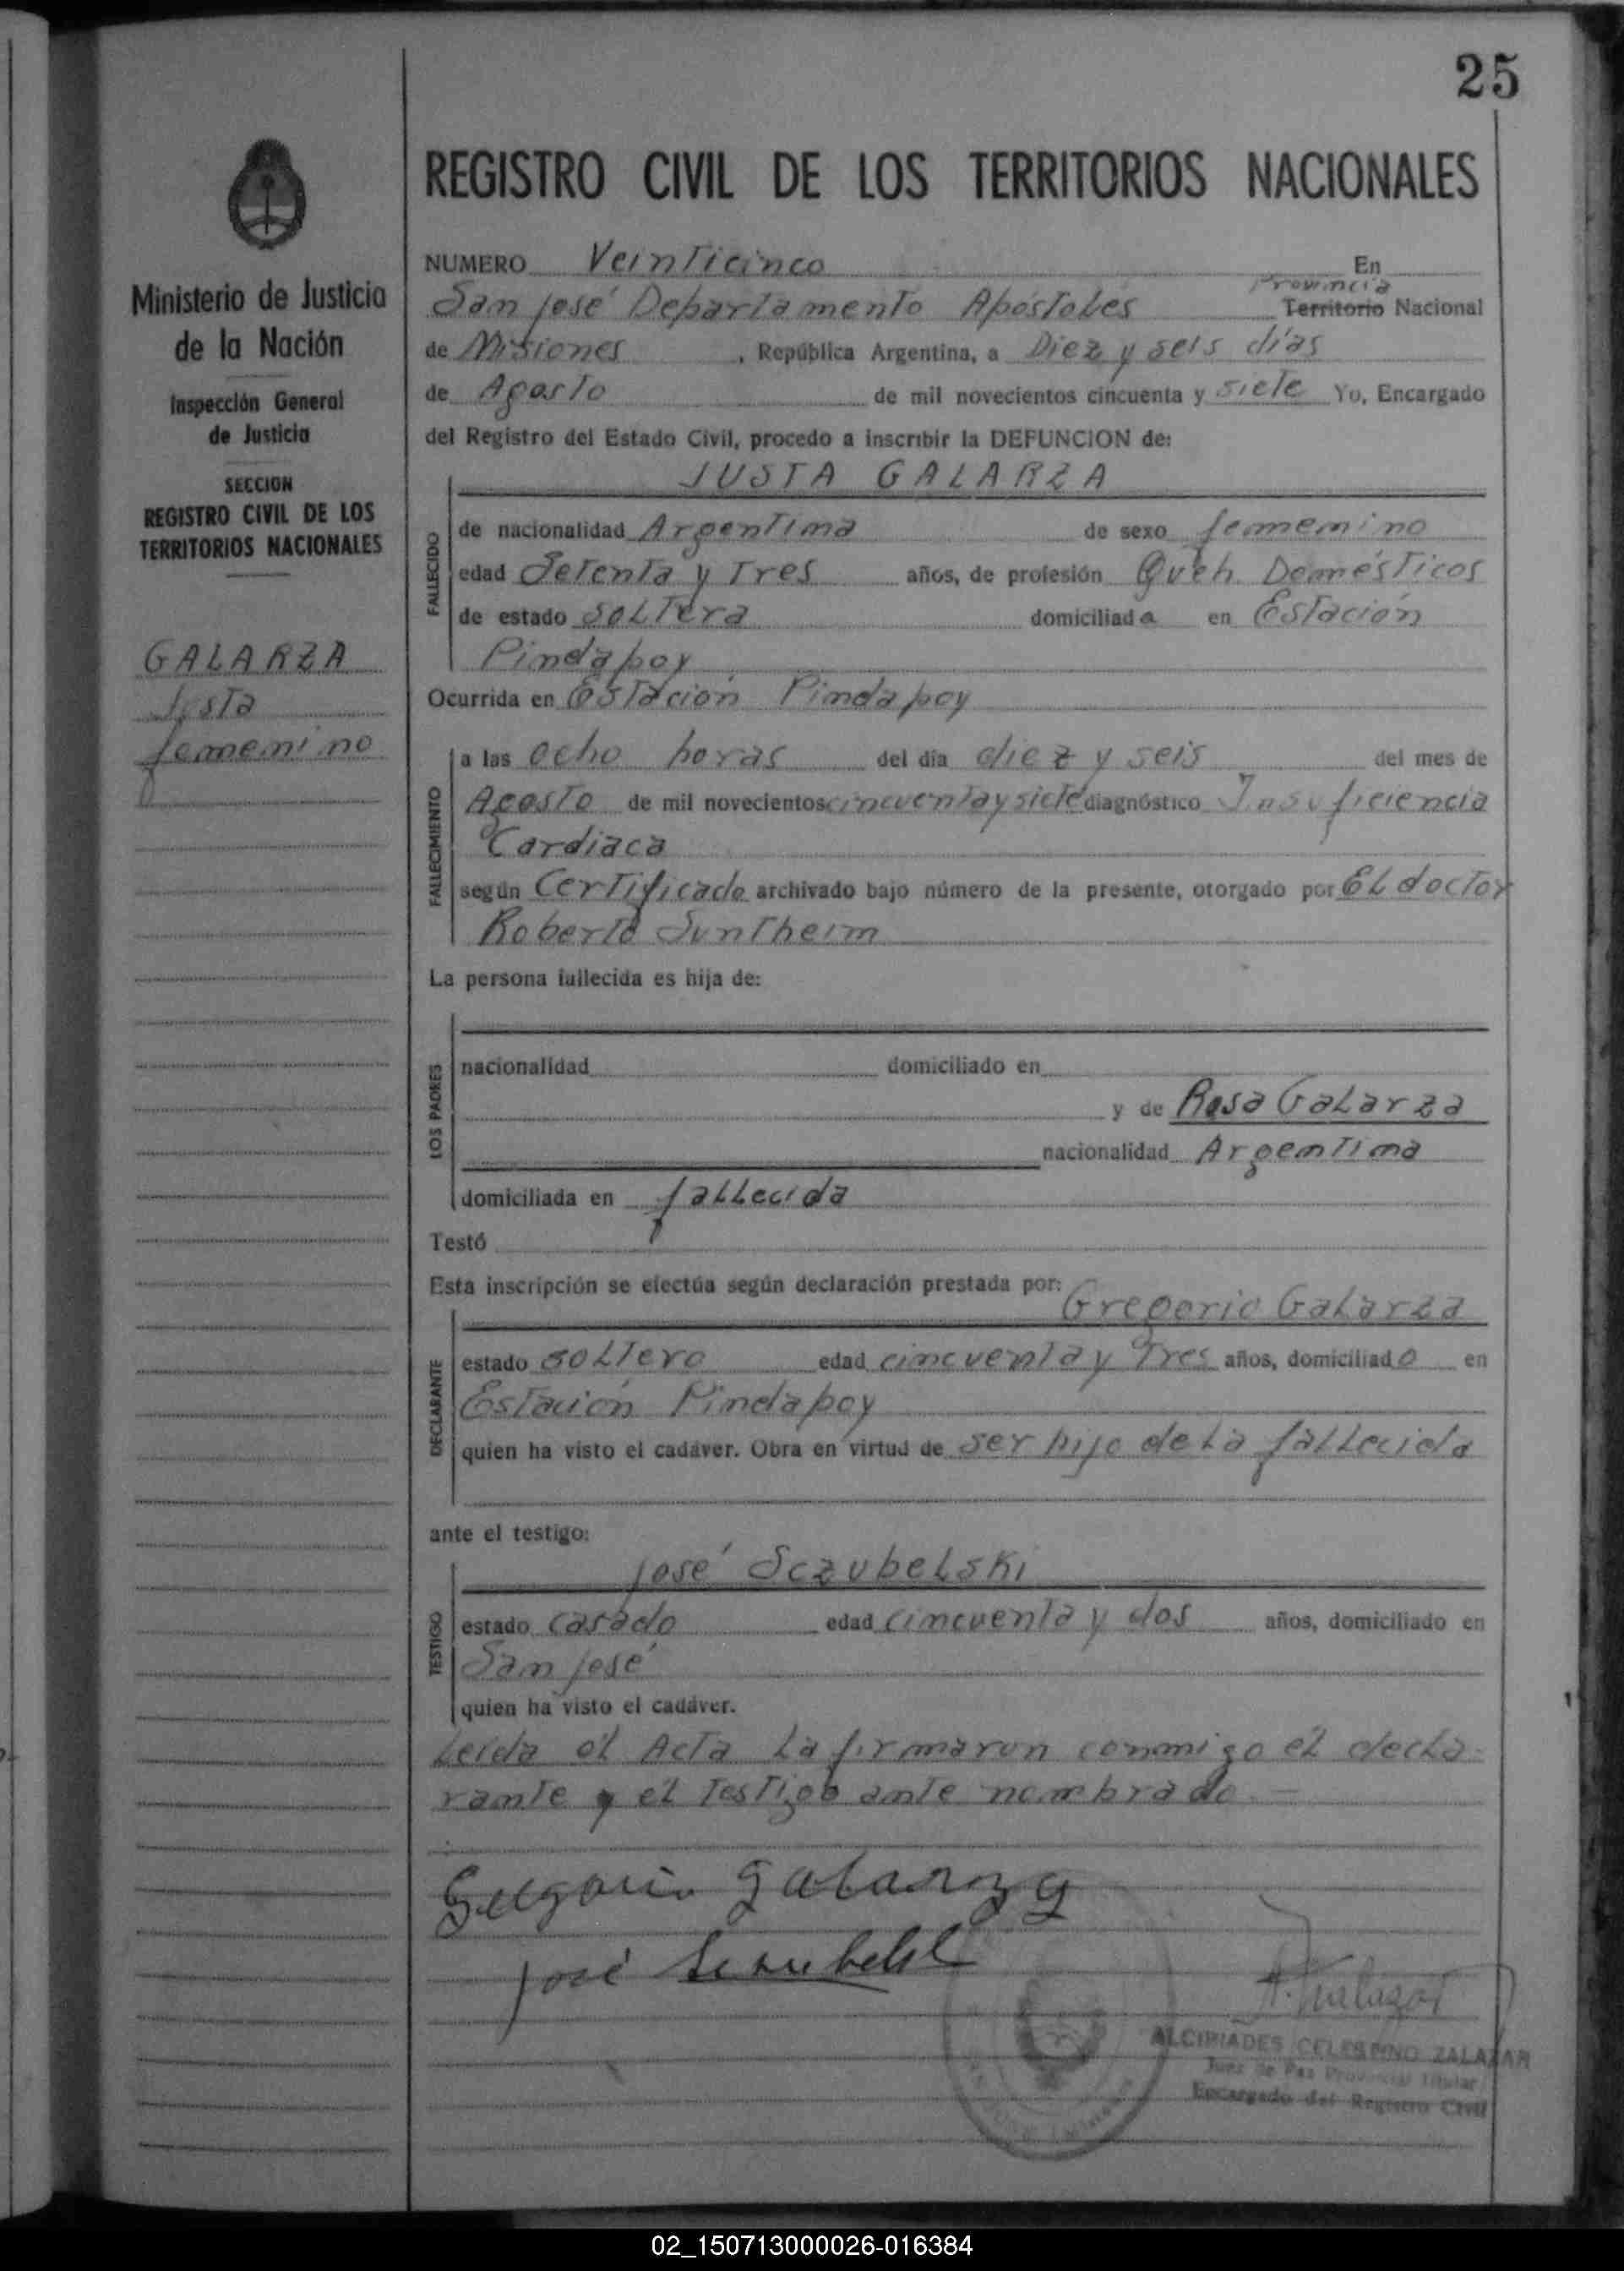 25
REGISTRO CIVIL DE LOS TERRITORIOS NACIONALES
Ministerio de Justicia
de la Nación
Inspección General
de Justicia
SECCION
REGISTRO CIVIL DE LOS
TERRITORIOS NACIONALES
GALARZA
Justa
femenino
NUMERO Veinticinco En
San José Departamento Apóstoles Provincia Territorio Nacional
de Misiones, República Argentina, a Diez y seis días
de Agosto de mil novecientos cincuenta y siete Yo, Encargado
del Registro del Estado Civil, procedo a inscribir la DEFUNCION de:
JUSTA GALARZA
FALLECIDO
de nacionalidad Argentina de sexo femenino
edad Setenta y Tres años, de profesión Queh. Domésticos
de estado soltera domiciliada en Estación
Pindapoy
Ocurrida en Estación Pindapoy
FALLECIMIENTO
a las ocho horas del día diez y seis del mes de
Agosto de mil novecientos cincuenta y siete diagnóstico Insuficiencia
Cardiaca
según Certificado archivado bajo número de la presente, otorgado por El doctor
Roberto Suntheim
La persona fallecida es hija de:
LOS PADRES
nacionalidad domiciliado en
y de Rosa Galarza
nacionalidad Argentina
domiciliada en fallecida
Testó
Esta inscripción se efectúa según declaración prestada por:
Gregorio Galarza
DECLARANTE
estado soltero edad cincuenta y Tres años, domiciliado en
Estación Pindapoy
quien ha visto el cadáver. Obra en virtud de ser hijo de la fallecida
ante el testigo:
José Sczubelski
TESTIGO
estado casado edad cincuenta y dos años, domiciliado en
San José
quien ha visto el cadáver.
Leida el Acta la firmaron conmigo el decla-
rante y el testigo ante nombrado
Gregorio Galarza
José
ALCIBIADES CELESTINO ZALAZAR
Juez de Paz Provincial Titular
Encargado del Registro Civil
02_150713000026-016384